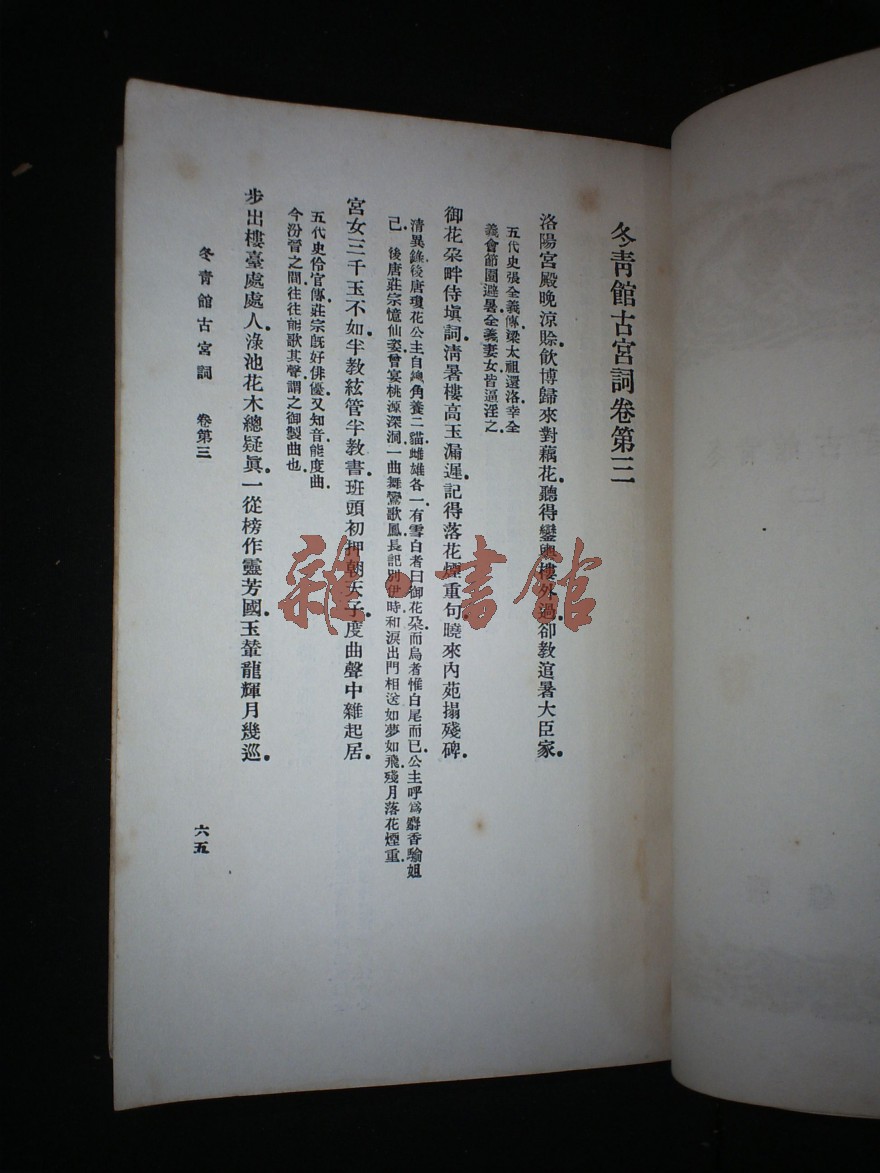 冬青館古宮詞卷第三
洛陽宮殿晚涼賒飲博歸來對藕花聽得鑾輿樓外過卻教逭暑大臣家
五代史張全義傳梁太祖還洛幸全
義會節園避暑全義妻女皆逼淫之
御花朶畔侍塡詞淸暑樓高玉漏遲記得落花煙重句曉來內苑搨殘碑
清異錄後唐瓊花公主自丱角養二貓雌雄各一有雪白者曰御花朶而烏者惟白尾而已公主呼爲麝香騟妲
己 後唐莊宗憶仙姿曾宴桃源深洞一曲舞鸞歌鳳長記別伊時和淚出門相送如夢如飛殘月落花煙重
宮女三千玉不如半教絃管半教書班頭初押朝天子度曲聲中雜起居
五代史伶官傳莊宗旣好俳優又知音能度曲
今汾晉之間往往能歌其聲謂之御製曲也
步出樓臺處處人淥池花木總疑眞一從榜作靈芳國玉輦龍輝月幾巡
冬青館古宮詞 卷第三
六五
雜書館